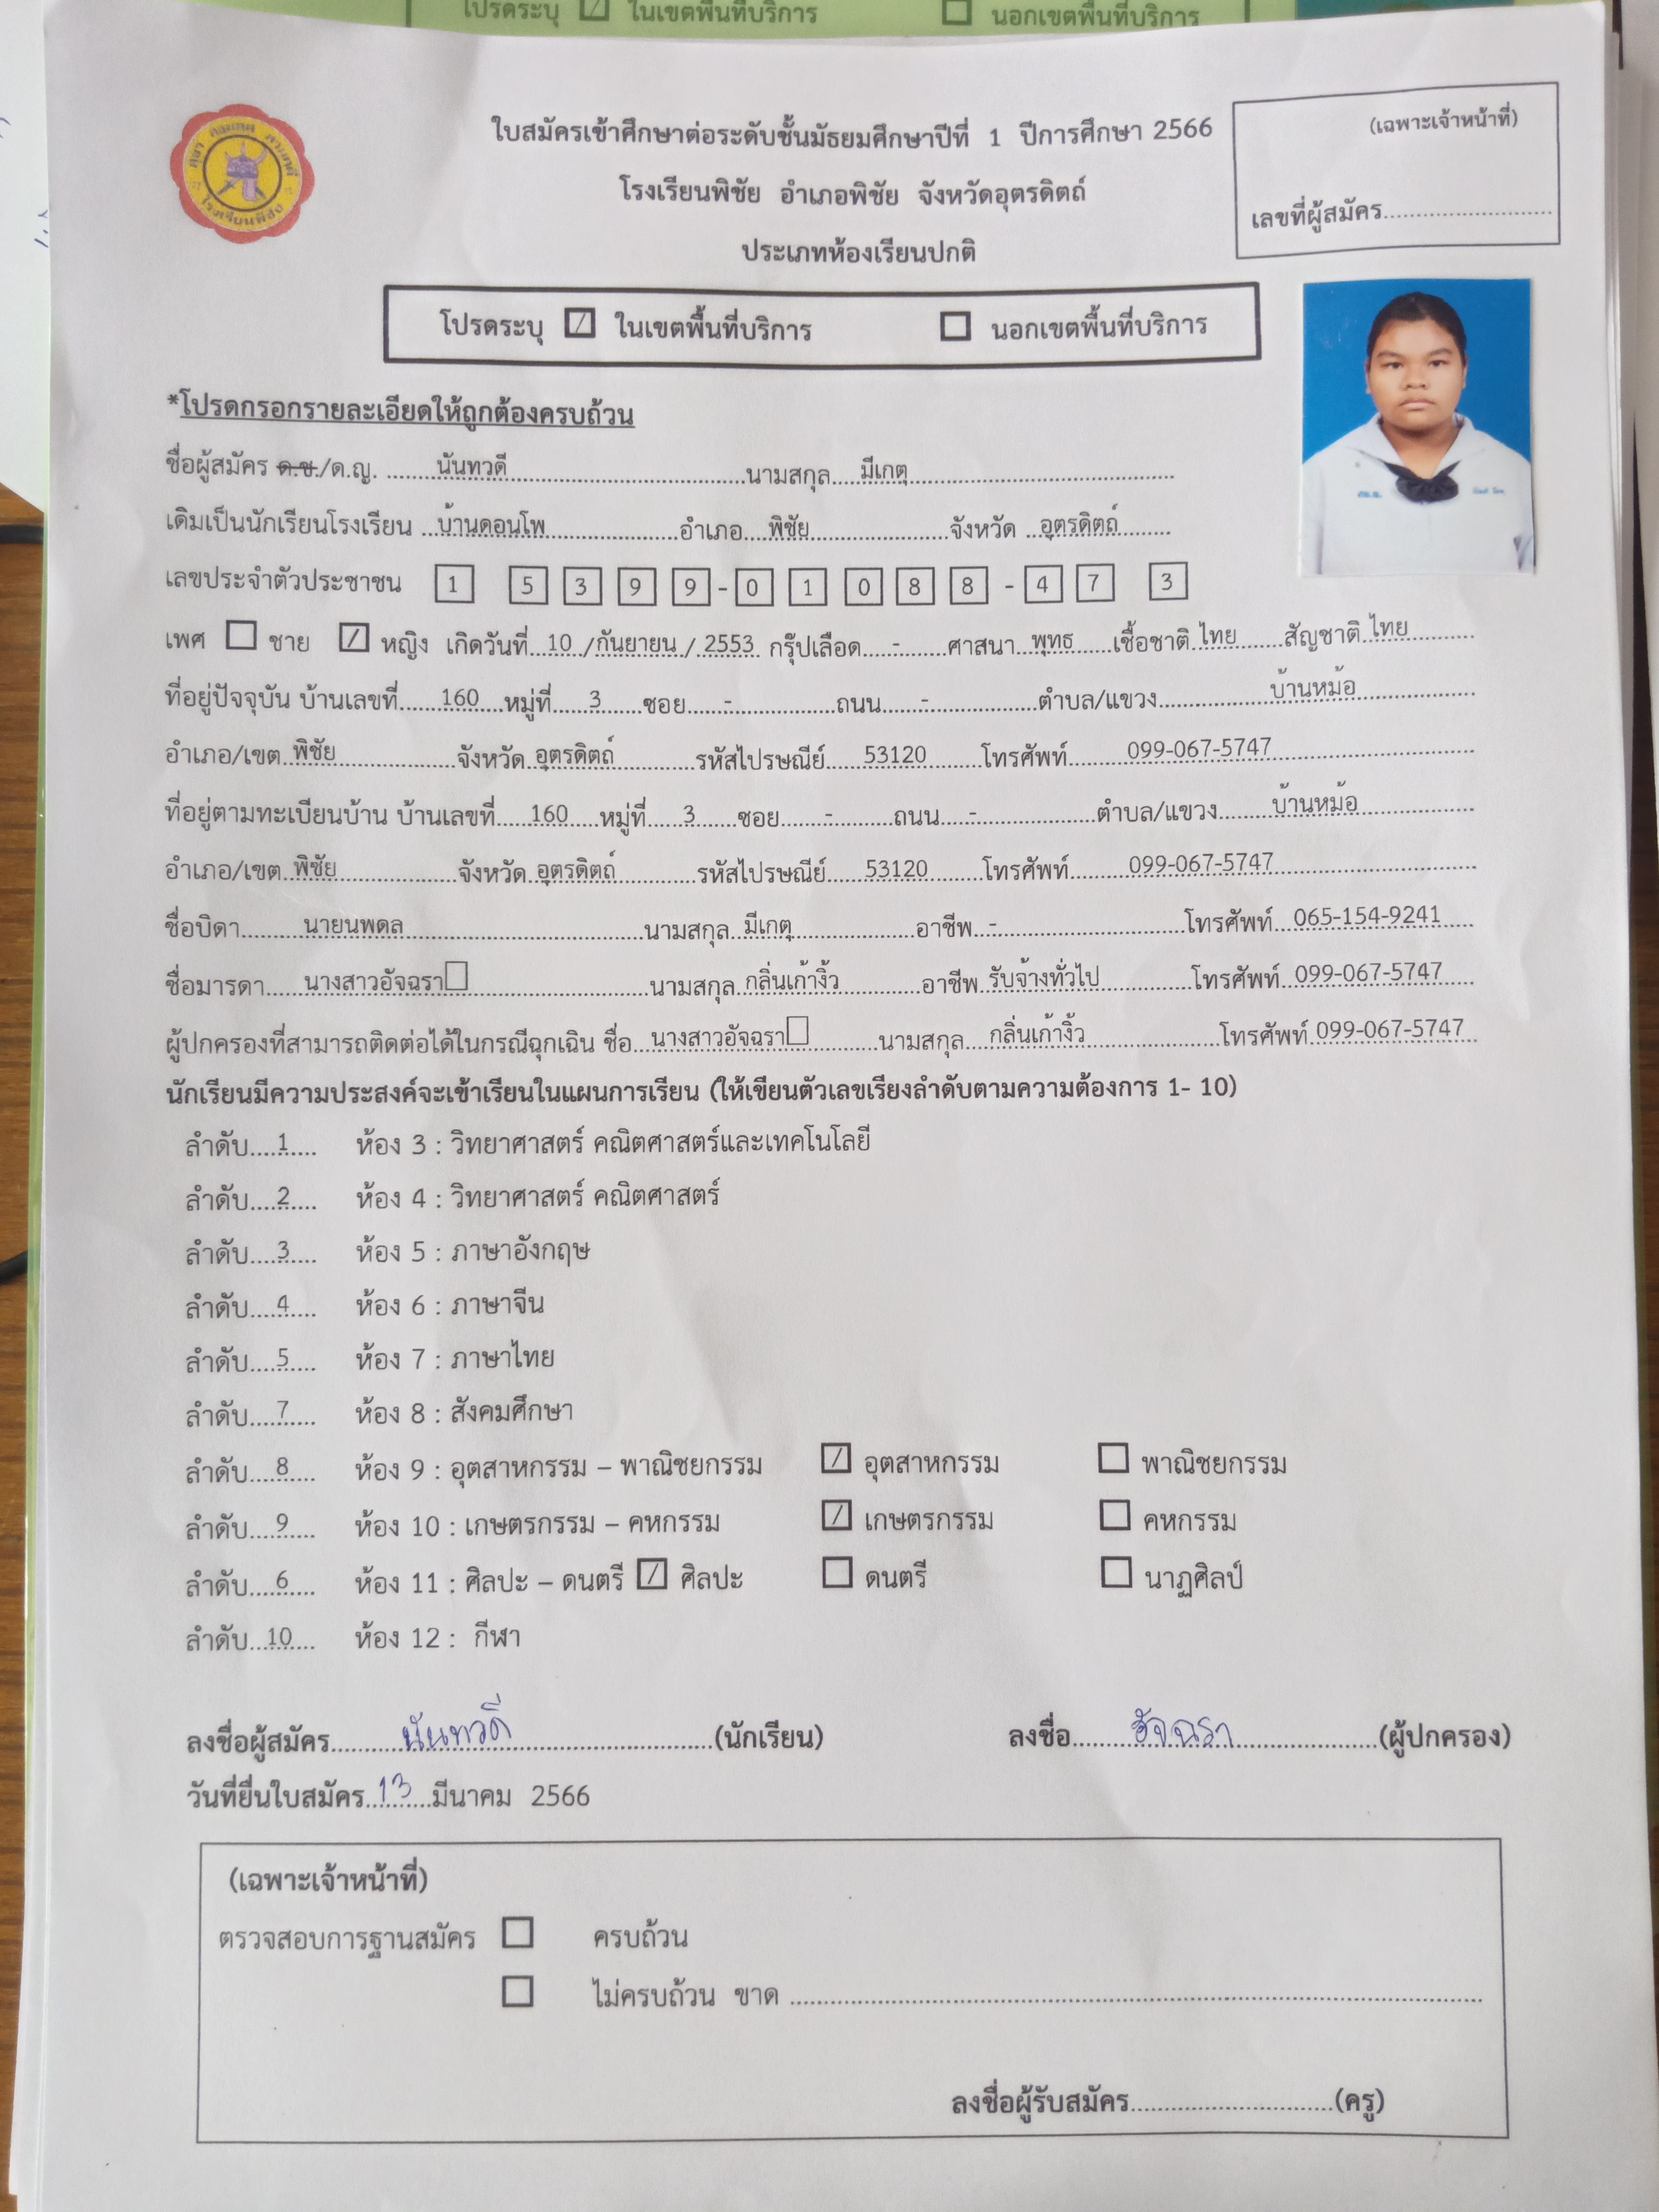 โปรดระบุ ☑ ในเขตพื้นที่บริการ ☐ นอกเขตพื้นที่บริการ
(เฉพาะเจ้าหน้าที่)
เลขที่ผู้สมัคร..............................
โรงเรียนพิชัย
ใบสมัครเข้าศึกษาต่อระดับชั้นมัธยมศึกษาปีที่ 1 ปีการศึกษา 2566
โรงเรียนพิชัย อำเภอพิชัย จังหวัดอุตรดิตถ์
ประเภทห้องเรียนปกติ
โปรดระบุ ☑ ในเขตพื้นที่บริการ ☐ นอกเขตพื้นที่บริการ
*โปรดกรอกรายละเอียดให้ถูกต้องครบถ้วน
ชื่อผู้สมัคร ด.ช./ด.ญ. ........นันทวดี........นามสกุล.....มีเกตุ........
เดิมเป็นนักเรียนโรงเรียน ...บ้านดอนโพ........อำเภอ....พิชัย........จังหวัด ...อุตรดิตถ์........
เลขประจำตัวประชาชน 1 5 3 9 9 - 0 1 0 8 8 - 4 7 3
เพศ ☐ ชาย ☑ หญิง เกิดวันที่...10 ./กันยายน / 2553 กรุ๊ปเลือด.....-.......ศาสนา...พุทธ.....เชื้อชาติ ไทย.......สัญชาติ ไทย........
ที่อยู่ปัจจุบัน บ้านเลขที่.......160....หมู่ที่......3......ซอย......-........ถนน......-........ตำบล/แขวง........บ้านหม้อ........
อำเภอ/เขต..พิชัย........จังหวัด..อุตรดิตถ์........รหัสไปรษณีย์......53120........โทรศัพท์........099-067-5747........
ที่อยู่ตามทะเบียนบ้าน บ้านเลขที่......160.....หมู่ที่......3.......ซอย.......-........ถนน.....-........ตำบล/แขวง........บ้านหม้อ........
อำเภอ/เขต..พิชัย........จังหวัด..อุตรดิตถ์........รหัสไปรษณีย์......53120........โทรศัพท์........099-067-5747........
ชื่อบิดา........นายนพดล........นามสกุล..มีเกตุ........อาชีพ...-........โทรศัพท์...065-154-9241.....
ชื่อมารดา......นางสาวอัจฉรา☐........นามสกุล..กลิ่นเก้างิ้ว........อาชีพ..รับจ้างทั่วไป........โทรศัพท์..099-067-5747.....
ผู้ปกครองที่สามารถติดต่อได้ในกรณีฉุกเฉิน ชื่อ...นางสาวอัจฉรา☐........นามสกุล....กลิ่นเก้างิ้ว........โทรศัพท์.099-067-5747..
นักเรียนมีความประสงค์จะเข้าเรียนในแผนการเรียน (ให้เขียนตัวเลขเรียงลำดับตามความต้องการ 1- 10)
ลำดับ.....1..... ห้อง 3 : วิทยาศาสตร์ คณิตศาสตร์และเทคโนโลยี
ลำดับ.....2..... ห้อง 4 : วิทยาศาสตร์ คณิตศาสตร์
ลำดับ.....3..... ห้อง 5 : ภาษาอังกฤษ
ลำดับ.....4..... ห้อง 6 : ภาษาจีน
ลำดับ.....5..... ห้อง 7 : ภาษาไทย
ลำดับ.....7..... ห้อง 8 : สังคมศึกษา
ลำดับ.....8..... ห้อง 9 : อุตสาหกรรม – พาณิชยกรรม ☑ อุตสาหกรรม ☐ พาณิชยกรรม
ลำดับ.....9..... ห้อง 10 : เกษตรกรรม – คหกรรม ☑ เกษตรกรรม ☐ คหกรรม
ลำดับ.....6..... ห้อง 11 : ศิลปะ – ดนตรี ☑ ศิลปะ ☐ ดนตรี ☐ นาฏศิลป์
ลำดับ...10.... ห้อง 12 : กีฬา
ลงชื่อผู้สมัคร...........นันทวดี........(นักเรียน) ลงชื่อ.........อัจฉรา........(ผู้ปกครอง)
วันที่ยื่นใบสมัคร..13.....มีนาคม 2566
(เฉพาะเจ้าหน้าที่)
ตรวจสอบการฐานสมัคร ☐ ครบถ้วน
☐ ไม่ครบถ้วน ขาด ........................................
ลงชื่อผู้รับสมัคร..............................(ครู)